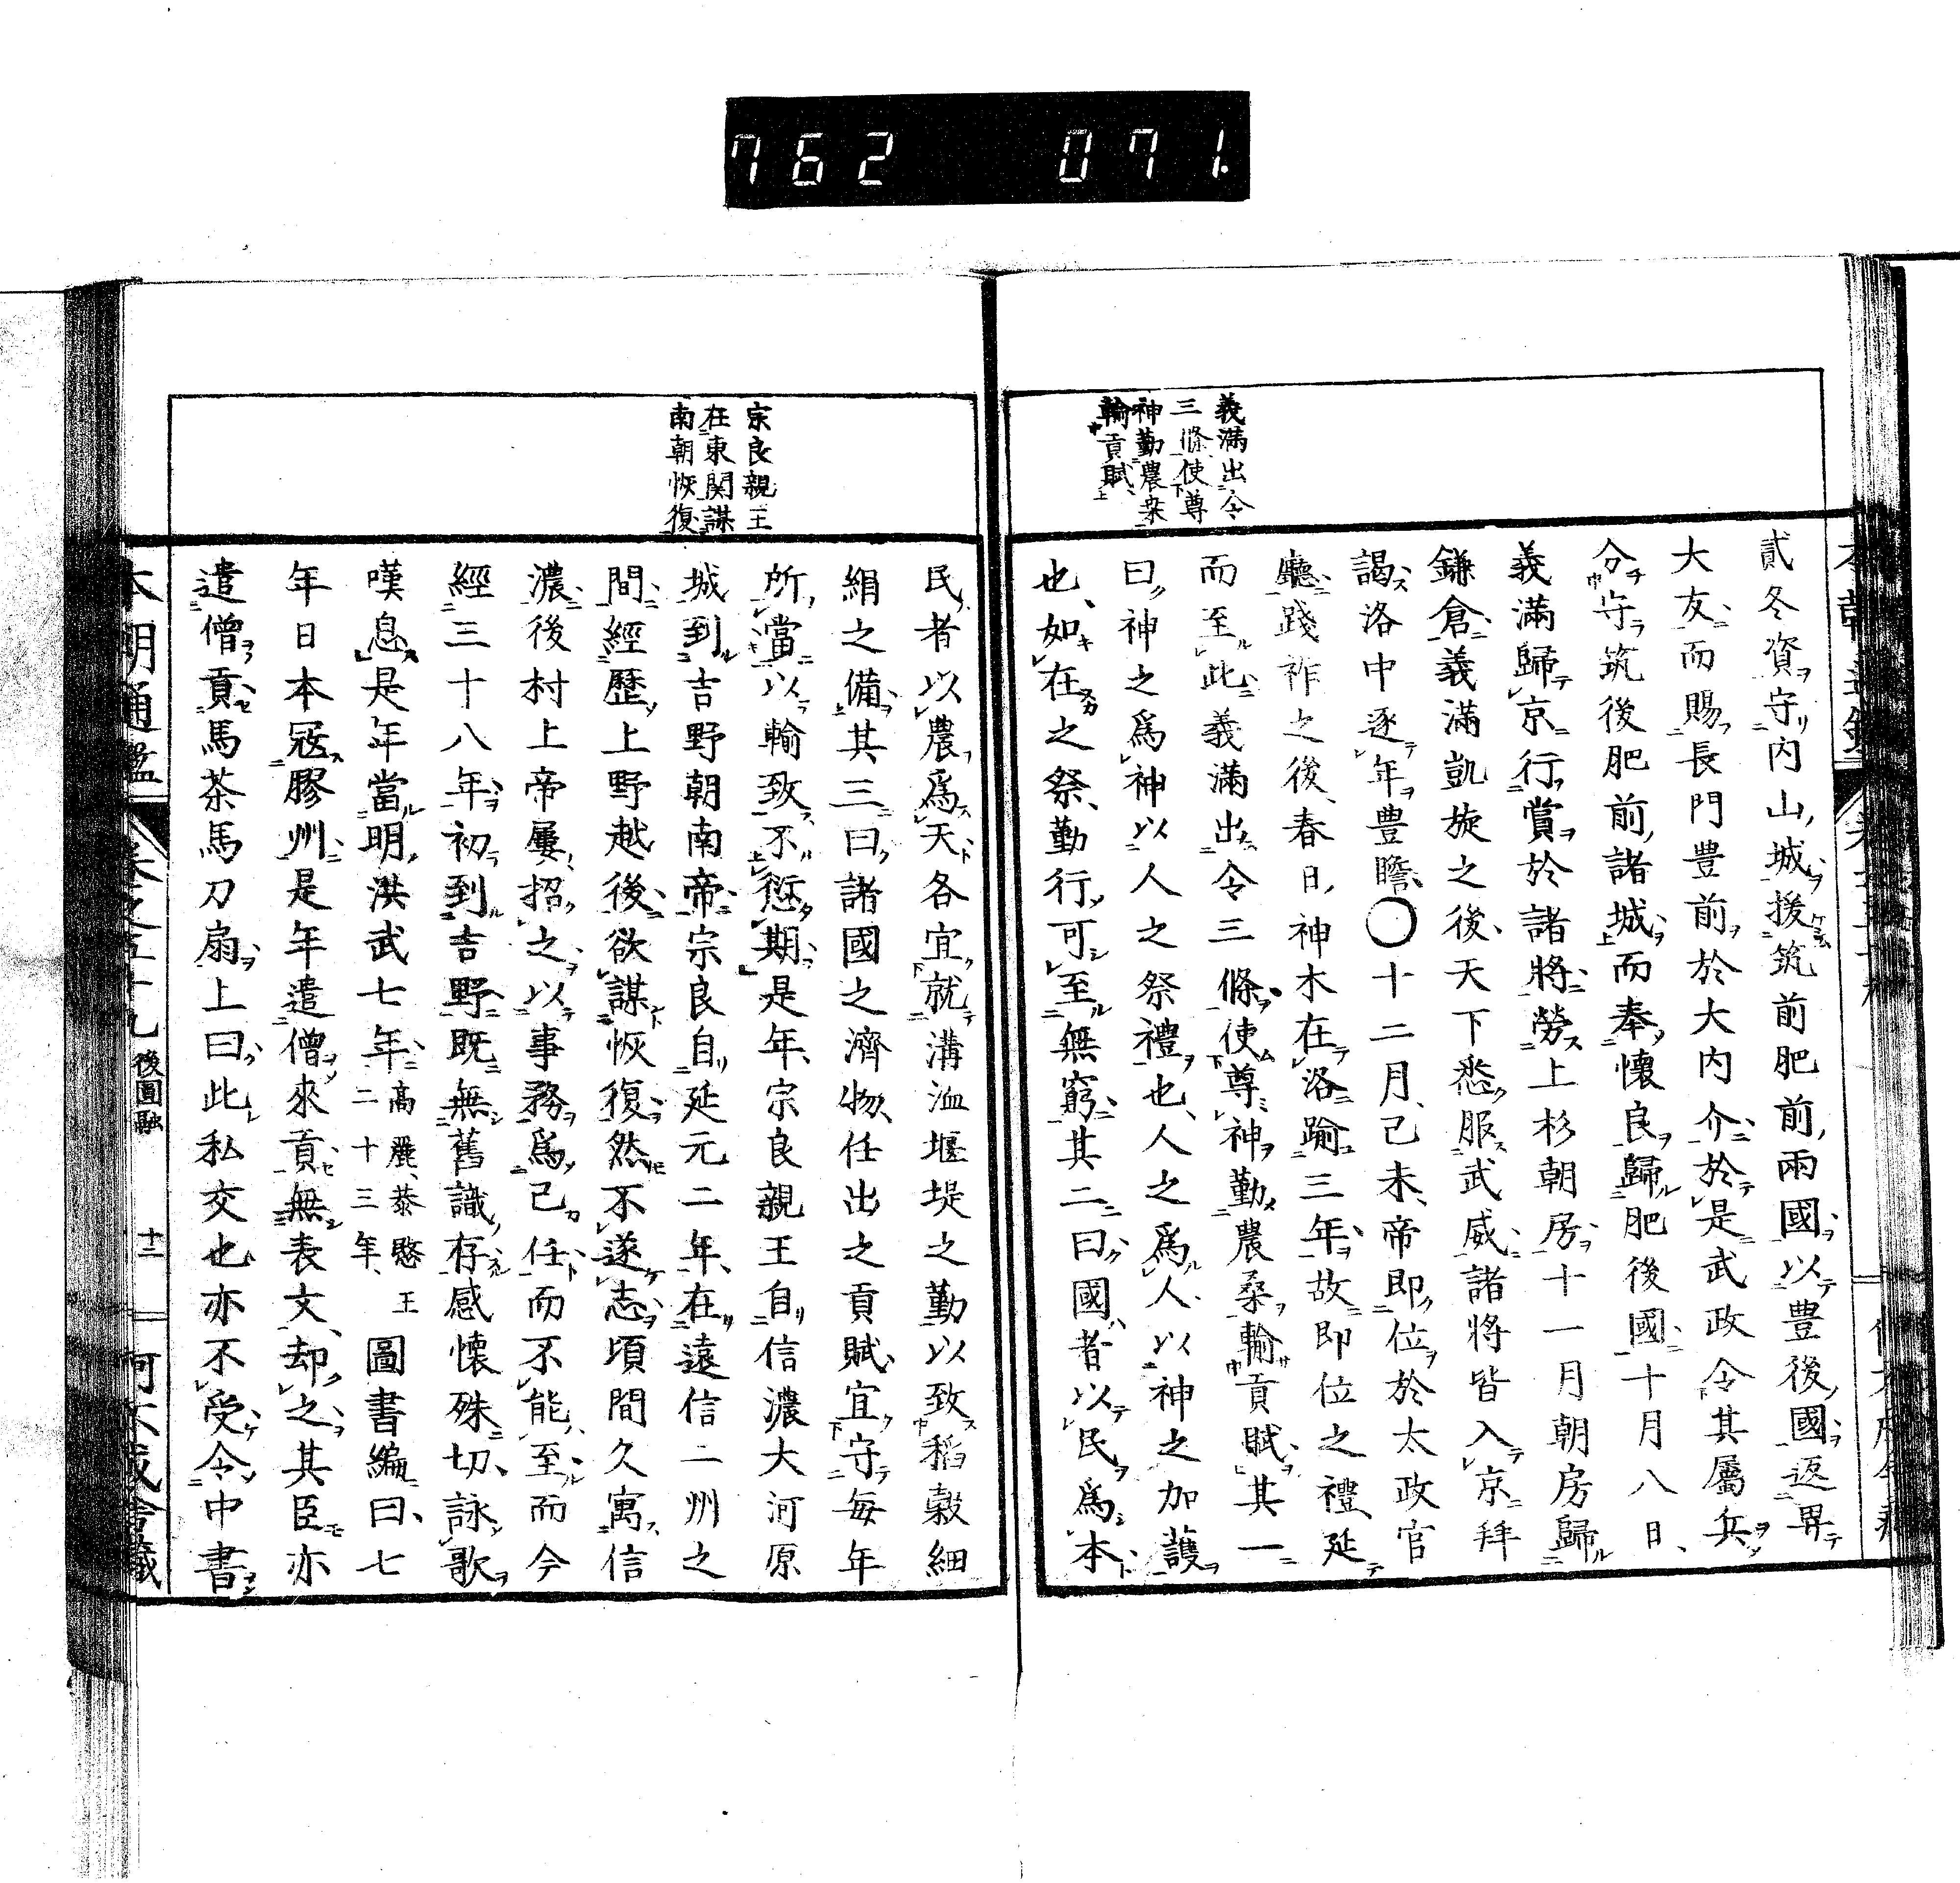 762 071.
義滿出令
三條使尊
神勤農桑
輸貢賦
貳冬資守內山城援筑前肥前兩國以豊後國返畀
大友而賜長門豊前於大內介於是武政令其屬兵
分守筑後肥前諸城而奉懷良歸肥後國十月八日
義滿歸京行賞於諸將勞上杉朝房十一月朝房歸
鎌倉義滿凱旋之後天下悉服武威諸將皆入京拜
謁洛中逐年豊贍〇十二月己未帝即位於太政官
廳踐祚之後春日神木在洛踰三年故即位之禮延
而至此義滿出令三條使尊神勤農桑輸貢賦其一
曰神之爲神以人之祭禮也人之爲人以神之加護
也如在之祭勤行可至無窮其二曰國者以民爲本
宗良親王
在東関謀
南朝恢復
民者以農爲天各宜就溝洫堰堤之勤以致稻穀細
絹之備其三曰諸國之濟物任出之貢賦宜守每年
所當以輸致不愆期是年宗良親王自信濃大河原
城到吉野朝南帝宗良自延元二年在遠信二州之
間經歷上野越後欲謀恢復然不遂志頃間久寓信
濃後村上帝屢招之以事務爲己任而不能至而今
經三十八年初到吉野既無舊識存感懷殊切詠歌
嘆息是年當明洪武七年高麗恭愍王二十三年圖書編曰七
年日本寇膠州是年遣僧來貢無表文却之其臣亦
遣僧貢馬茶馬刀扇上曰此私交也亦不受令中書
本朝通鑑 卷之五十九 後圓融 十二